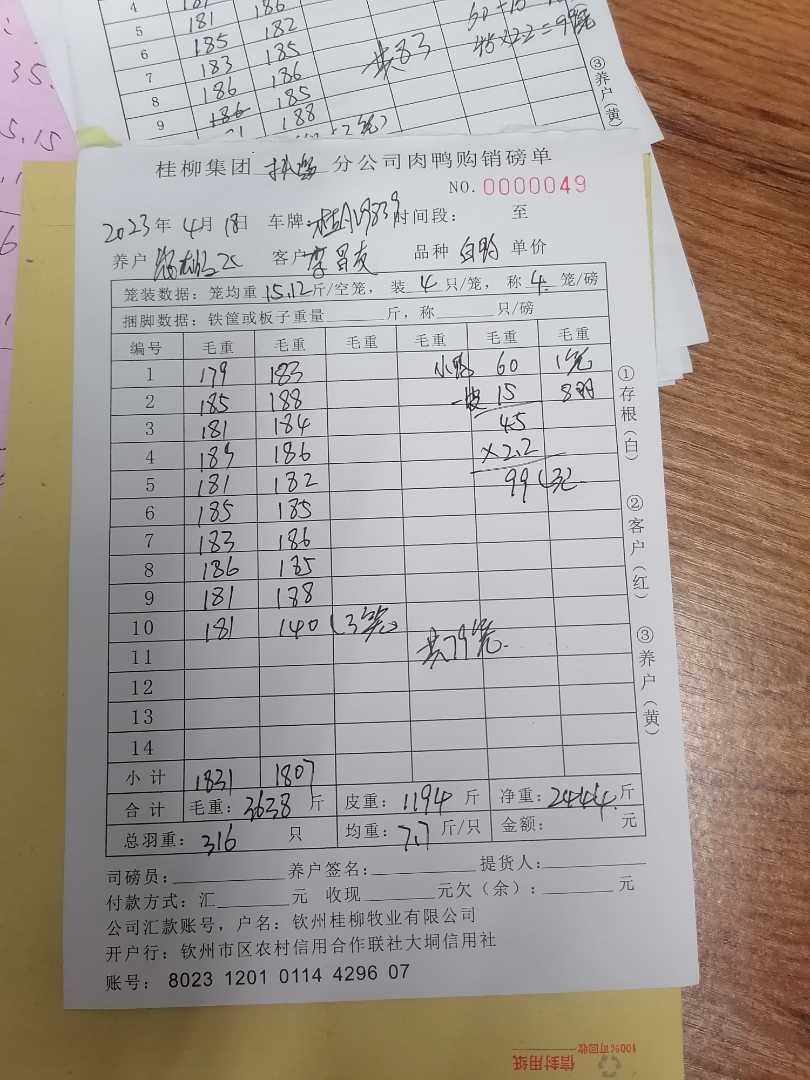 4 181 186
5 181 182
6 185 185
7 183 186
8 186 185
9 186 188
共83
45×2.2=99元
③养户(黄)
35.
5.15
桂柳集团 分公司肉鸭购销磅单
NO.0000049
2023年4月18日 车牌: 时间段: 至
养户 客户李昌友 品种白鸭 单价
笼装数据: 笼均重15.12斤/空笼, 装4只/笼, 称4笼/磅
捆脚数据: 铁筐或板子重量 斤, 称 只/磅
编号 毛重 毛重 毛重 毛重 毛重 毛重
1 179 183 小鸭 60 1笼
2 185 188 15 8羽
3 181 184 45
4 189 186 ×2.2
5 181 182 99元
6 185 185
7 183 186
8 186 185
9 181 188
10 181 140(3笼)
11 共79笼
12
13
14
小计 1831 1807
合计 毛重:3638斤 皮重:1194斤 净重:2444斤
总羽重:316只 均重:7.7斤/只 金额: 元
①存根(白)
②客户(红)
③养户(黄)
司磅员: 养户签名: 提货人:
付款方式: 汇 元 收现 元欠(余): 元
公司汇款账号, 户名: 钦州桂柳牧业有限公司
开户行: 钦州市区农村信用合作联社大垌信用社
账号: 8023 1201 0114 4296 07
信封用纸
100%可回收